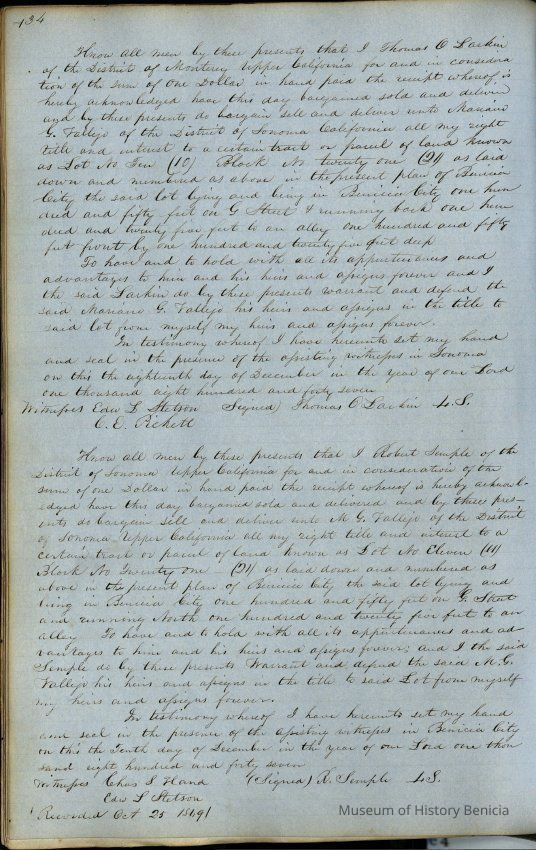 134
Know all men by these presents that I Thomas O Larkin
of the District of Monterey Upper California for and in considera
tion of the sum of One Dollar in hand paid the receipt whereof is
hereby acknowledged have this day bargained sold and deliver
and by these presents do bargain sell and deliver unto Mariano
G. Vallejo of the District of Sonoma California all my right
title and interest to a certain tract or parcel of land known
as Lot No Ten (10) Block No twenty one (21) as laid
down and numbered as above in the present plan of Benicia
City the said lot lying and being in Benicia City one hun
dred and fifty feet on G Street & running back one hun
dred and twenty five feet to an alley one hundred and fifty
feet front by one hundred and twenty five feet deep
To have and to hold with all its appurtenances and
advantages to him and his heirs and assigns forever and I
the said Larkin do by these presents warrant and defend the
said Mariano G. Vallejo his heirs and assigns in the title to
said lot from myself my heirs and assigns forever.
In testimony whereof I have hereunto set my hand
and seal in the presence of the assisting witnesses in Sonoma
on this the eighteenth day of December in the year of our Lord
one thousand eight hundred and forty seven
Witnesses Edw L Stetson Signed) Thomas O Larkin L.S.
C. E. Pickett
Know all men by these presents that I Robert Semple of the
District of Sonoma Upper California for and in consideration of the
sum of one Dollar in hand paid the receipt whereof is hereby acknowl-
edged have this day bargained sold and delivered and by these pres-
ents do bargain sell and deliver unto M G. Vallejo of the District
of Sonoma Upper California all my right title and interest to a
certain tract or parcel of land known as Lot No Eleven (11)
Block No Twenty one (21) as laid down and numbered as
above in the present plan of Benicia City the said lot lying and
being in Benicia City one hundred and fifty feet on G. Street
and running North one hundred and twenty five feet to an
alley To have and to hold with all its appurtenances and ad-
vantages to him and his heirs and assigns forever; and I the said
Semple do by these presents Warrant and defend the said M. G.
Vallejo his heirs and assigns in the title to said Lot from myself
my heirs and assigns forever.
In testimony whereof I have hereunto set my hand
and seal in the presence of the assisting witnesses in Benicia City
on this the Tenth day of December in the year of our Lord one thou
sand eight hundred and forty seven
Witnesses Chas S. Hand (Signed) R. Semple L.S.
Edw L Stetson
Recorded Oct 25 1849
Museum of History Benicia